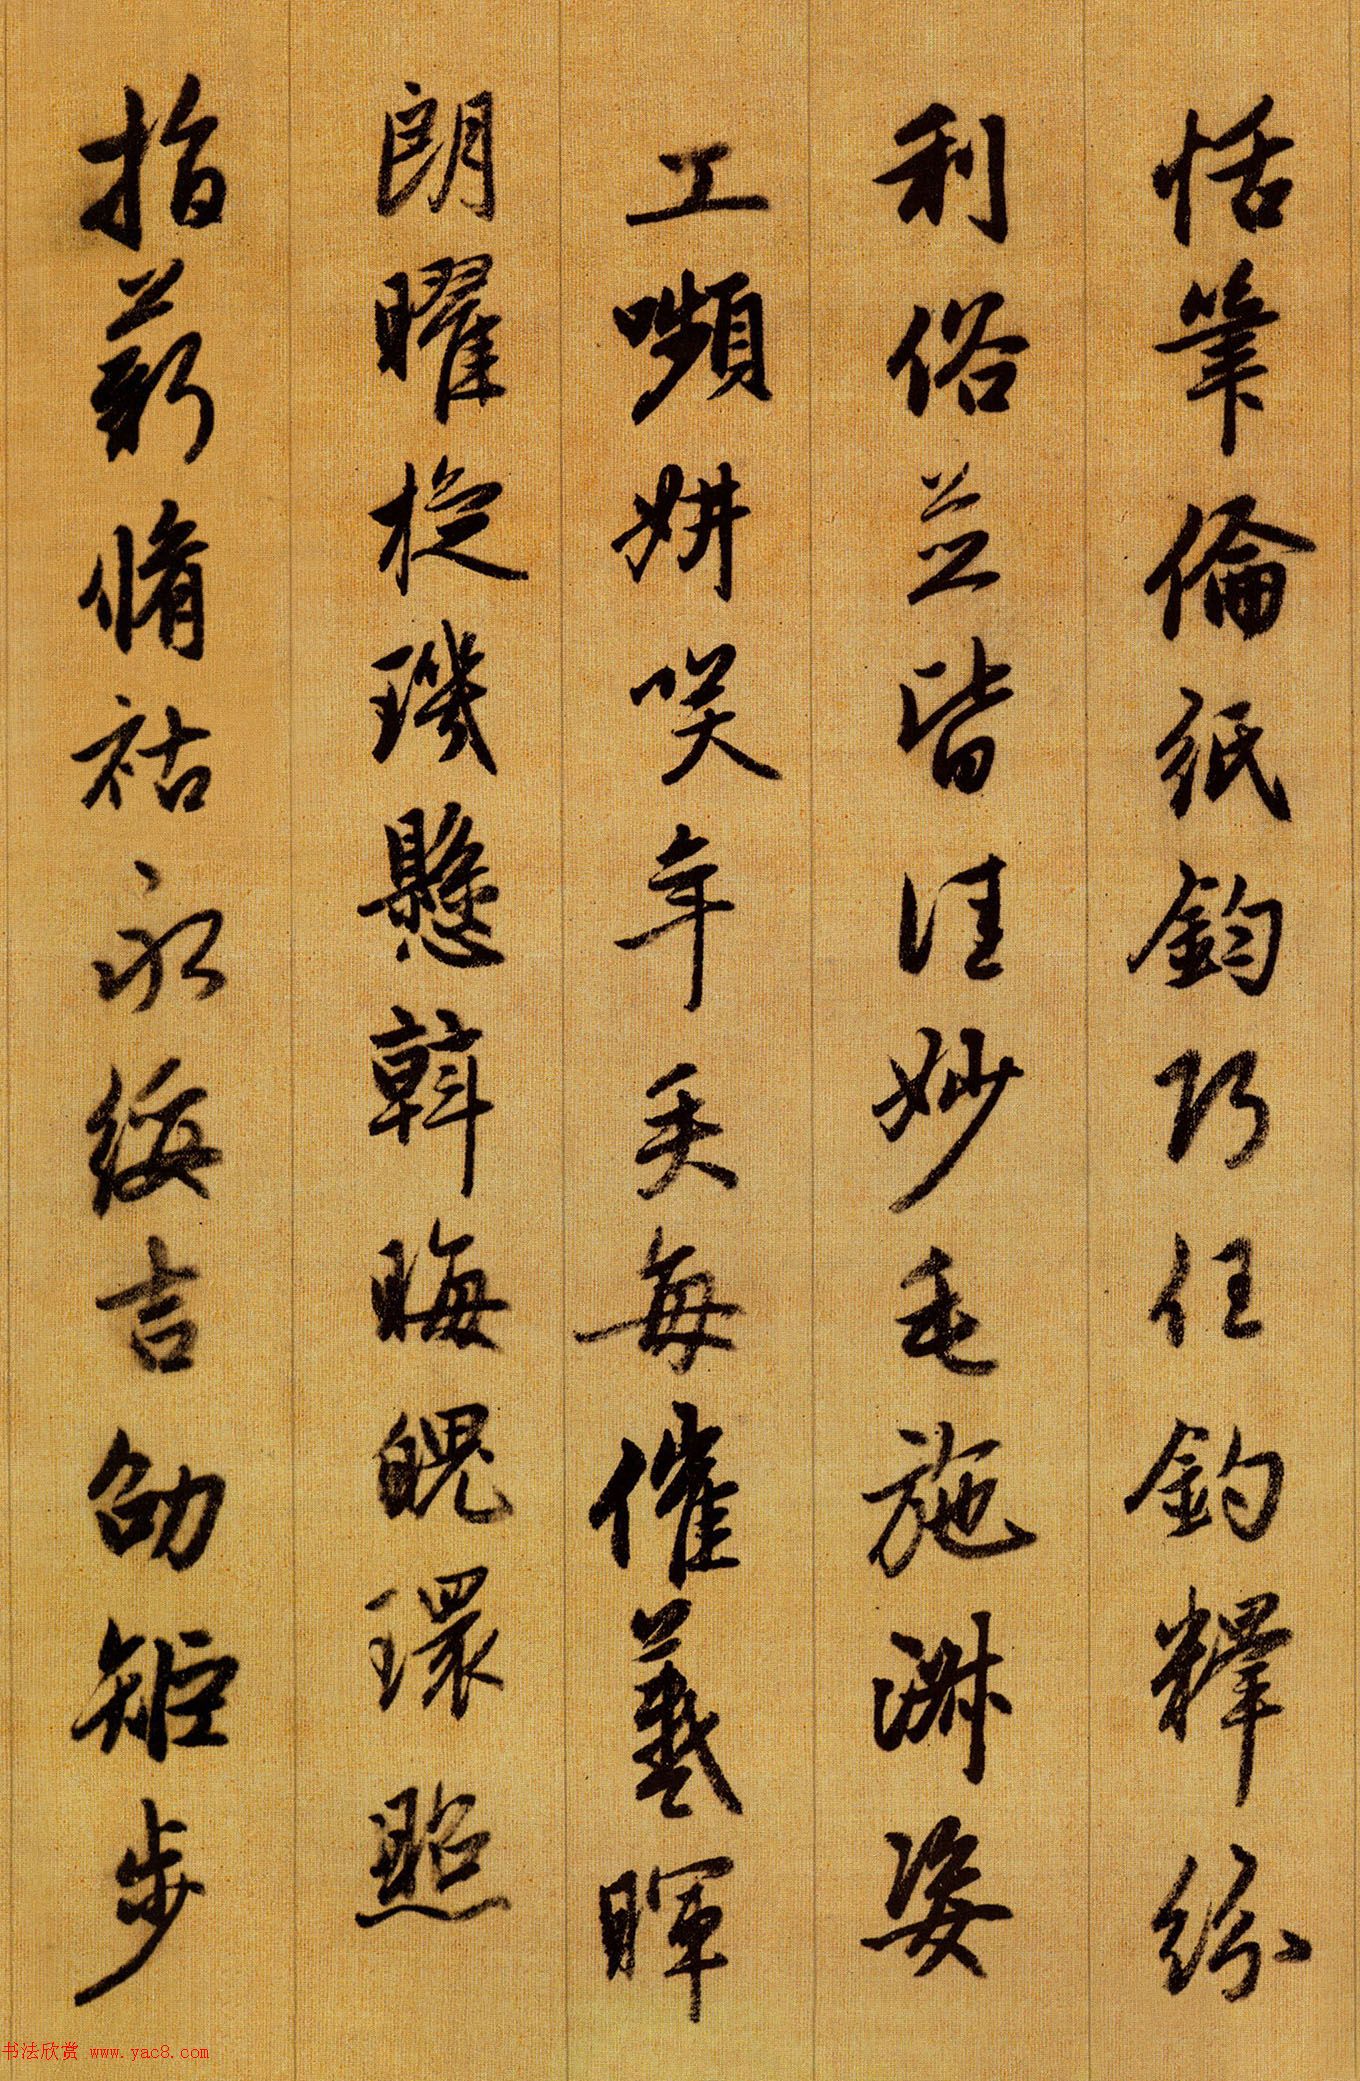 恬筆倫紙鈞巧任釣釋紛
利俗並皆佳妙毛施淑姿
工嚬妍笑年矢每催羲暉
朗曜旋璣懸斡晦魄環照
指薪脩祜永綏吉劭矩步
书法欣赏 www.yac8.com